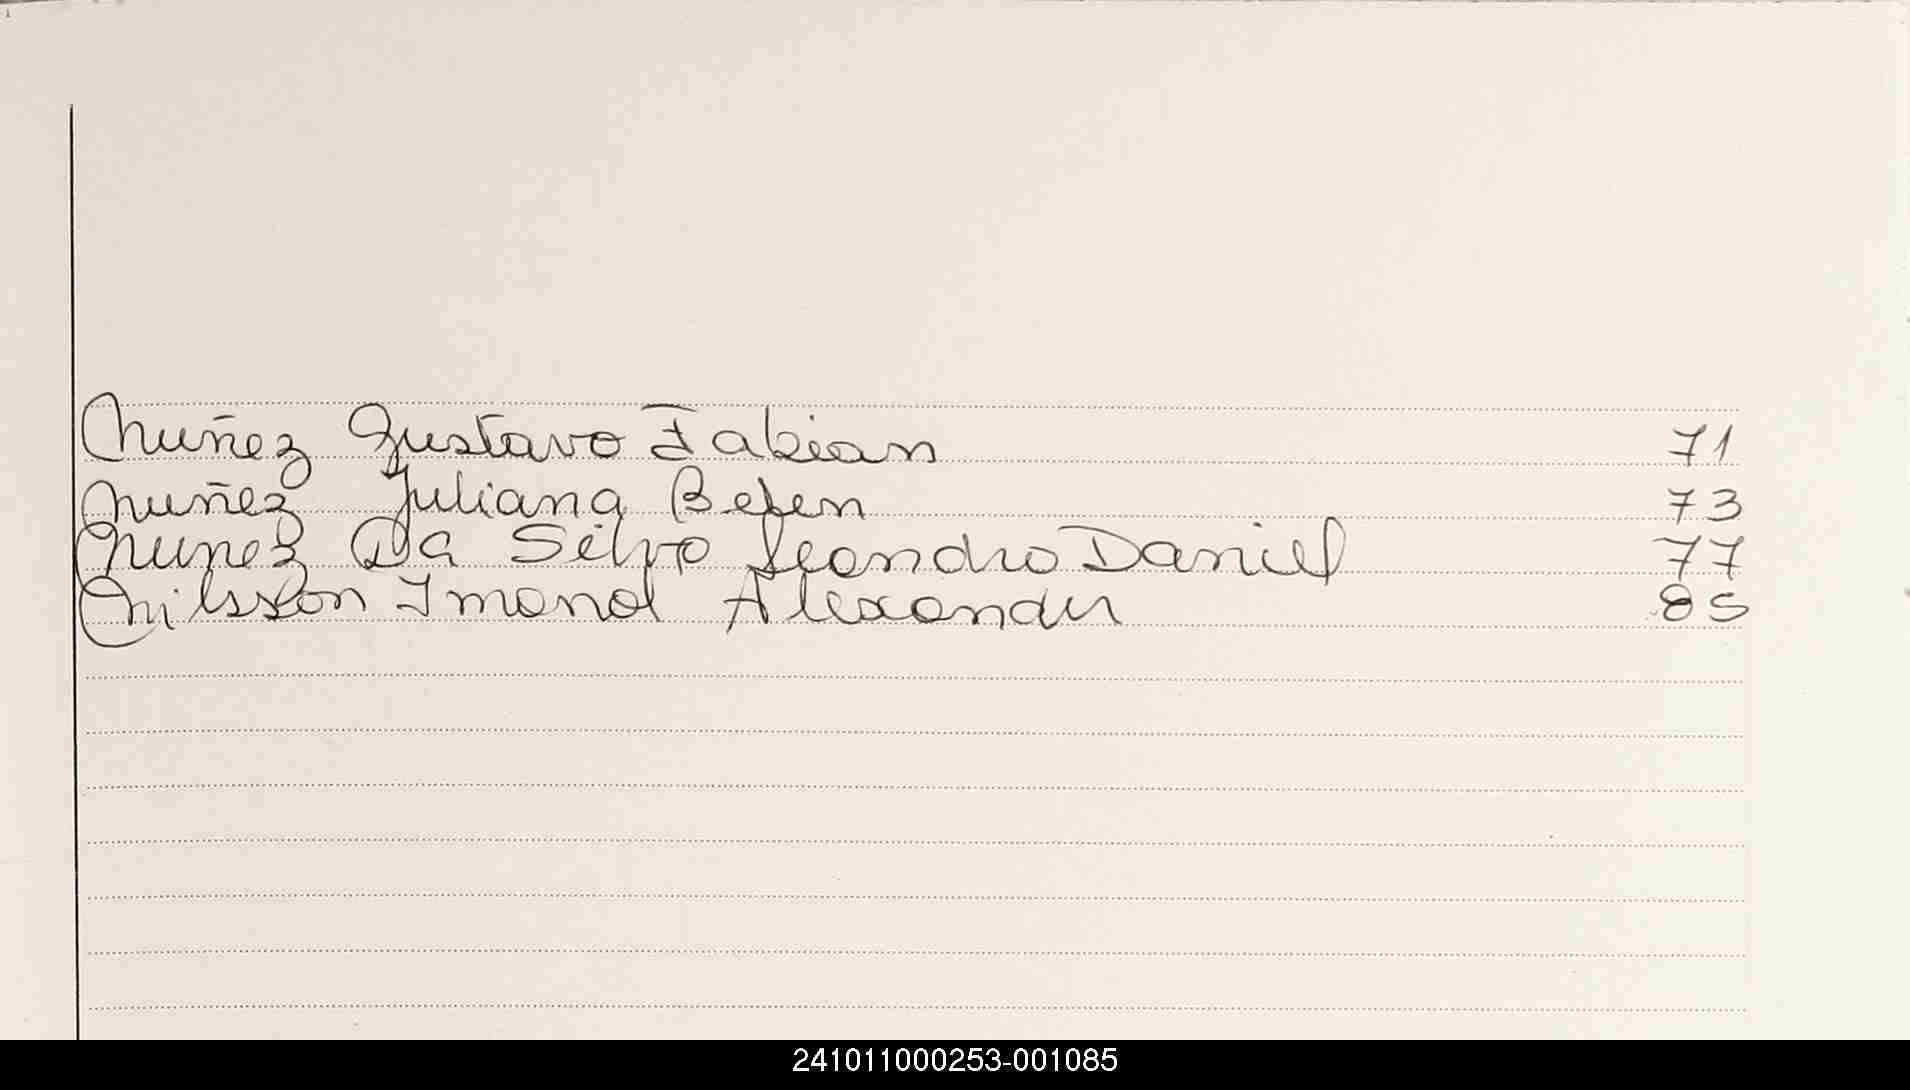 Nuñez Gustavo Fabian 71
Nuñez Juliana Belen 73
Nunez Da Silva Leandro Daniel 77
Nilsson Imanol Alexander 85
241011000253-001085